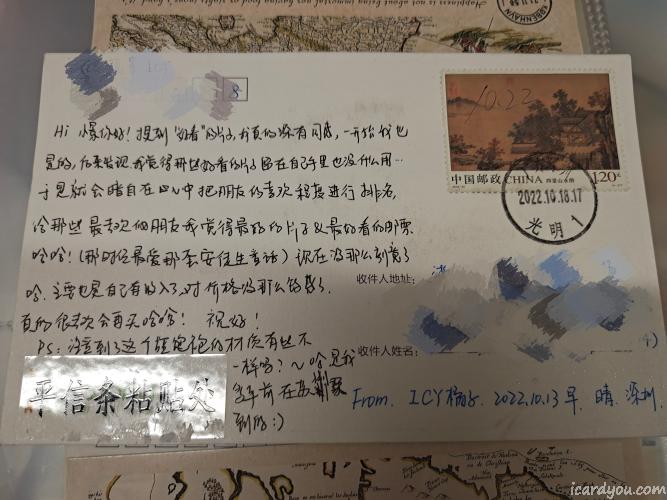 Happiness is not is being immortal nor having food or rights in one's hand
KØBENHAVN
8
Hi 你好!提到"好看"的片子,我真的深有同感,一开始我也
是的,后来发现我觉得那些好看的片子留在自己手里也没什么用…
于是就会暗自在心中把朋友的喜欢程度进行排名,
给那些最喜欢的朋友我觉得最好的片子&最好看的邮票
哈哈!(那时候最爱那套安徒生童话)现在没那么刻意了
哈,主要也是自己有收入了,对价格没那么敏感了
真的很喜欢会再买哈哈! 祝好!
PS:注意到了这个 的材质有些不
一样吗?~哈是我
多年前在
到的:)
10.22
中国邮政 CHINA 四景山水图 1.20元
2022.10.18.17
光明 1
收件人地址:
收件人姓名:
平信条粘贴处
From. ICY杨子. 2022.10.13 早. 晴. 深圳.
icardyou.com